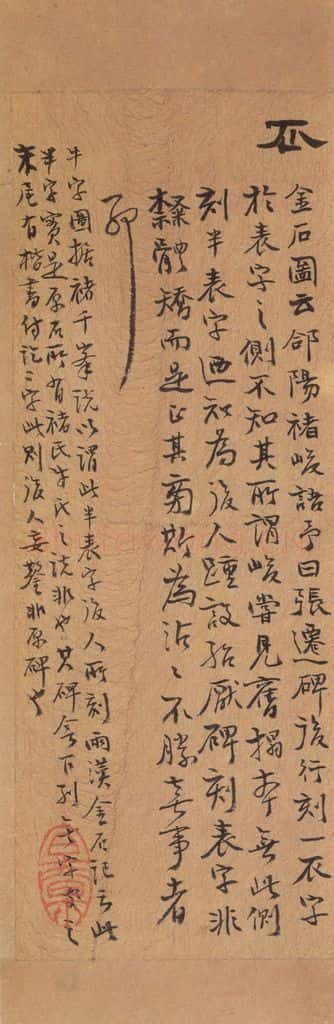 金石圖云郃陽褚峻語予曰張遷碑後行刻一衣字
於表字之側不知其所謂峻嘗見舊搨本無此側
刻半表字迺知為後人踵設殆厭碑刻表字非
隸體矯而是正其斯為沾〻不勝喜事者
卯
牛字圖据褚千峯說以謂此半表字後人所刻兩漢金石記云此
半字實是原石所有褚氏牛氏之說非也其碑舍下列字
末尾有楷書付記二字此則後人妄鑿非原碑也